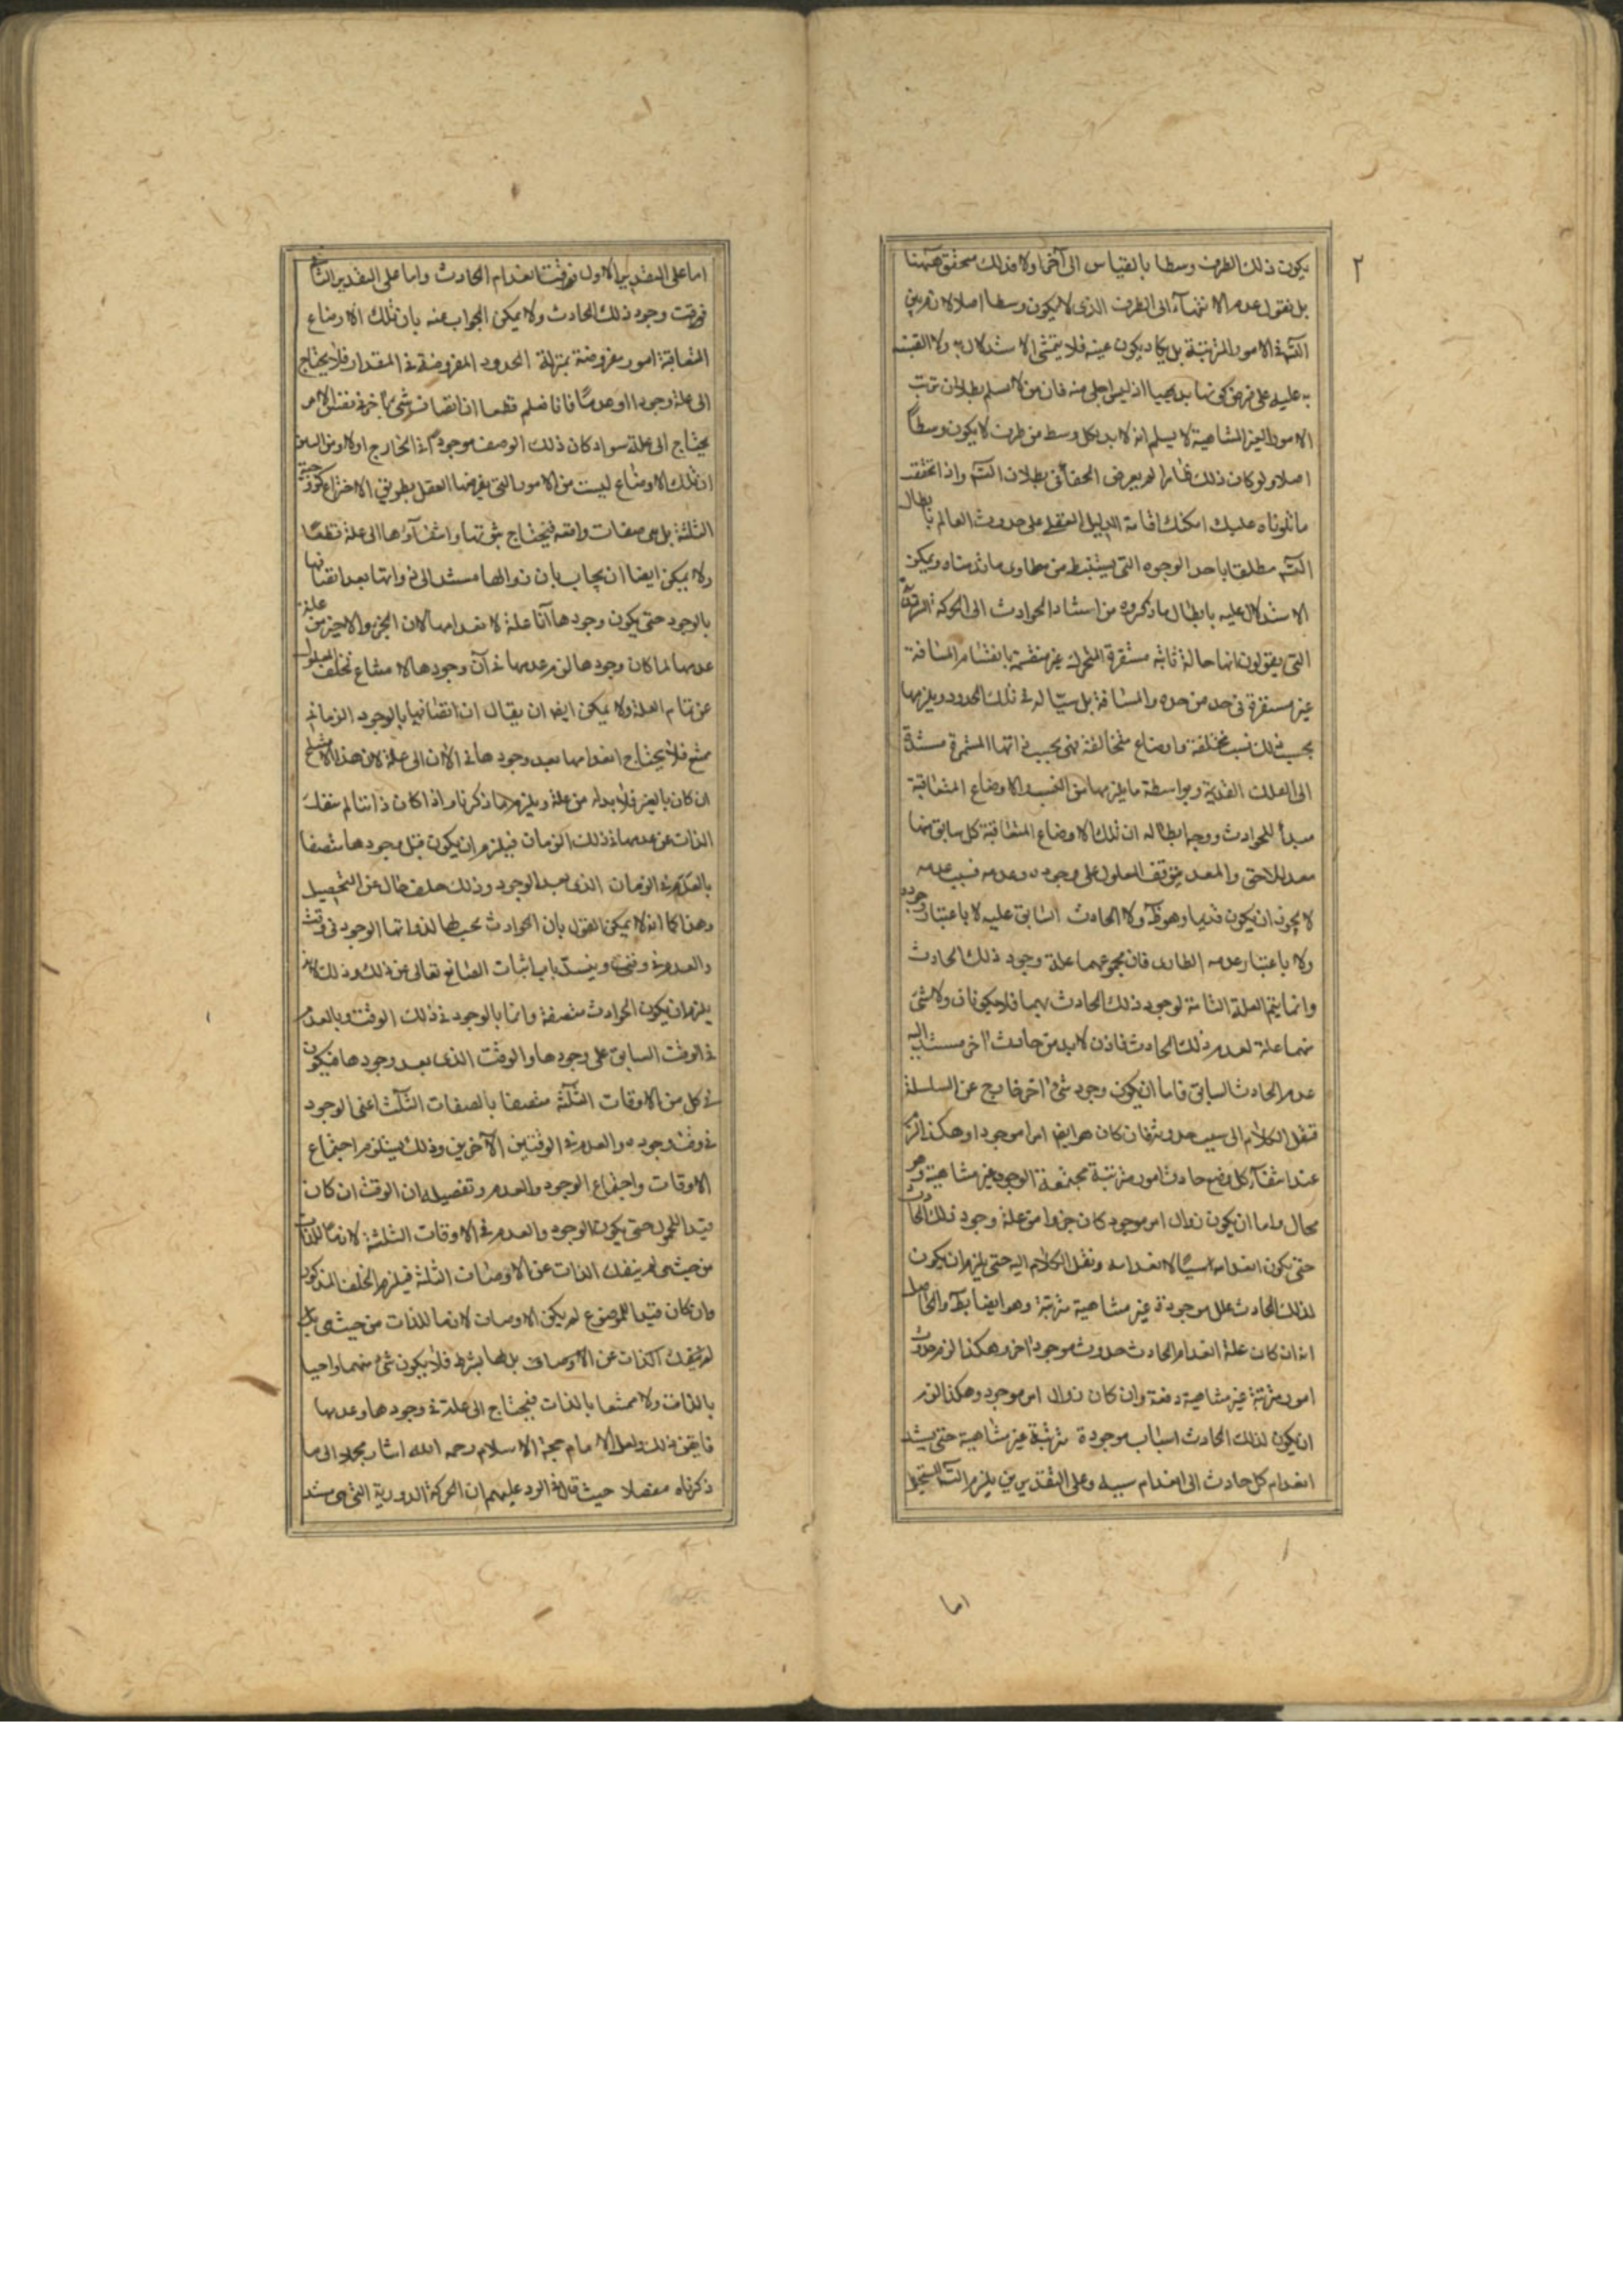 ٢
يكون ذلك الطرف وسطا بالقياس الى آخر اولا وذلك متحقق ههنا
بل نقول عدم الانتهاء الى الطرف الذى لا يكون وسطا اصلا لازم بين
التسه فى الامور المترتبة بل يكاد يكون عينه فلا يتمشى الاستدلال به ولا التنبيه
به عليه على فرض كونها بديهيا اذ ليس اجلى منه فان من لا يسلم بطلان ترتب
الامور الغير المتناهية لا يسلم انه لا بد لكل وسط من طرف لا يكون وسطاً
اصلا ولو كان ذلك ظاهرا لم يعرض الخفاء فى بطلان التسه واذا تحققت
ما تلوناه عليك امكنك اقامة الدليل العقلى على حدوث العالم بابطال
التسه مطلقا باحد الوجوه التى يستنبط من مطاوى ما قدمناه ويمكن
الاستدلال عليه بابطال ما ذكروه من استناد الحوادث الى الحركة
التى يقولون انها حالة ثابتة مستقرة المتحرك غير منقسمة بانقسام المسافة
غير مستقرة فى حد من حدود المسافة بل سيّالة فى تلك الحدود ويلزمها
بحسب ذلك نسب مختلفة واوضاع متخالفة فهى بحسب ذاتها المستمرة مستندة
الى العلل القديمة وبواسطة ما يلزمها من النسب والاوضاع المتعاقبة
مبدأ للحوادث ووجه ابطاله ان تلك الاوضاع المتعاقبة كل سابق منها
معد للاحق والمعد يتوقف المعلول على وجوده وعدمه فسبب عدمه
لا يجوز ان يكون قديما وهو ظَ ولا الحادث السابق عليه لا باعتبار وجوده
ولا باعتبار عدمه الطارى فان مجموعهما علة وجود ذلك الحادث
وانما يتم العلة التامة لوجود ذلك الحادث بهما فلا يكونان ولا شئ
منهما علة لعدم ذلك الحادث فاذن لا بد من حادث اخر مستند اليه
عدم الحادث السابق فاما ان يكون وجود شئ اخر خارج عن السلسلة
فننقل الكلام الى سبب حدوثه فان كان هو ايضا امرا موجودا وهكذا لزم
عند انتفاء كل وضع حادث امور مترتبة مجتمعة الوجود غير متناهية وهو
محال واما ان يكون زوال امر موجود كان جزوا من علة وجود ذلك الحادث
حتى يكون انعدامه سببا لانعدامه وننقل الكلام اليه حتى يلزم ان يكون
لذلك الحادث علل موجودة غير متناهية مترتبة وهو ايضا بط والحاصل
انه ان كان علة انعدام الحادث حدوث موجود اخر وهكذا لزم حدوث
امور مترتبة غير متناهية دفعة وان كان زوال امر موجود وهكذا لزم
ان يكون لذلك الحادث اسباب موجودة مترتبة غير متناهية حتى يستند
انعدام كل حادث الى انعدام سببه وعلى التقديرين يلزم التسه المستحيل
اما
اما على التقدير الاول فوقت انعدام الحادث واما على التقدير الثانى
فوقت وجود ذلك الحادث ولا يمكن الجواب عنه بان تلك الاوضاع
المتعاقبة امور مفروضة بمنزلة الحدود المفروضة فى المقدار فلا يحتاج
الى علة وجودا او عدماً فانا نعلم قطعا ان اتصاف شئ باخر فى نفس الامر
يحتاج الى علة سواء كان ذلك الوصف موجوداً فى الخارج اولا ومن البين
ان تلك الاوضاع ليست من الامور التى يفرضها العقل بطريق الاختراع كزوجية
الثلثة بل هى صفات واقعه فيحتاج ثبوتها وانتفاؤها الى علة قطعا
ولا يمكن ايضا ان يجاب بان زوالها مستند الى ذواتها بعد اتصافها
بالوجود حتى يكون وجودها آنا علة لانعدامها لان الجزو الاخير من علة
عدمها لما كان وجودها لزم عدمها فى آن وجودها لامتناع تخلف المعلول
عن تمام العلة ولا يمكن ايضا ان يقال ان اتصافها بالوجود الزمانى
ممتنع فلا يحتاج انعدامها بعد وجودها فى الآن الى علة لان هذا الامتناع
ان كان بالغير فلا بد له من علة ويلزم ما ذكرنا واذا كان ذاتيا لم ينفك
الذات عن عدمها فى ذلك الزمان فيلزم ان يكون قبل وجودها متصفا
بالعدم فى الزمان الذى بعد الوجود وذلك خلف خال عن التحصيل
وهذا كما انه لا يمكن القول بان الحوادث يجب لها لذواتها الوجود فى وقت
والعدم فى وقت وينسدّ باب اثبات الصانع تعالى عن ذلك وذلك لانه
يلزم ان يكون الحوادث متصفة دائما بالوجود فى ذلك الوقت وبالعدم
فى الوقت السابق على وجودها والوقت الذى بعد وجودها فيكون
فى كل من الاوقات الثلثة متصفا بالصفات الثلث اعنى الوجود
فى وقت وجوده والعدم فى الوقتين الآخرين وذلك يستلزم اجتماع
الاوقات واجتماع الوجود والعدم وتفصيله ان الوقت ان كان
قيدا للمحمول حتى يكون الوجود والعدم فى الاوقات الثلثة لازما للذات
من حيث هى لم ينفك الذات عن الاوصاف الثلثة فيلزم الخلف المذكور
وان كان قيدا للموضوع لم يكن الاوصاف لازما للذات من حيث هى بل
لم ينفك الذات عن الاوصاف بل لها بشرط فلا يكون شئ منهما واجبا
بالذات ولا ممتنعا بالذات فيحتاج الى علة فى وجودها وعدمها
فايقن ذلك ولعل الامام حجة الاسلام رحمه الله اشار مجملا الى ما
ذكرناه مفصلا حيث قال فى الرد عليهم ان الحركة الدورية التى هى مستند